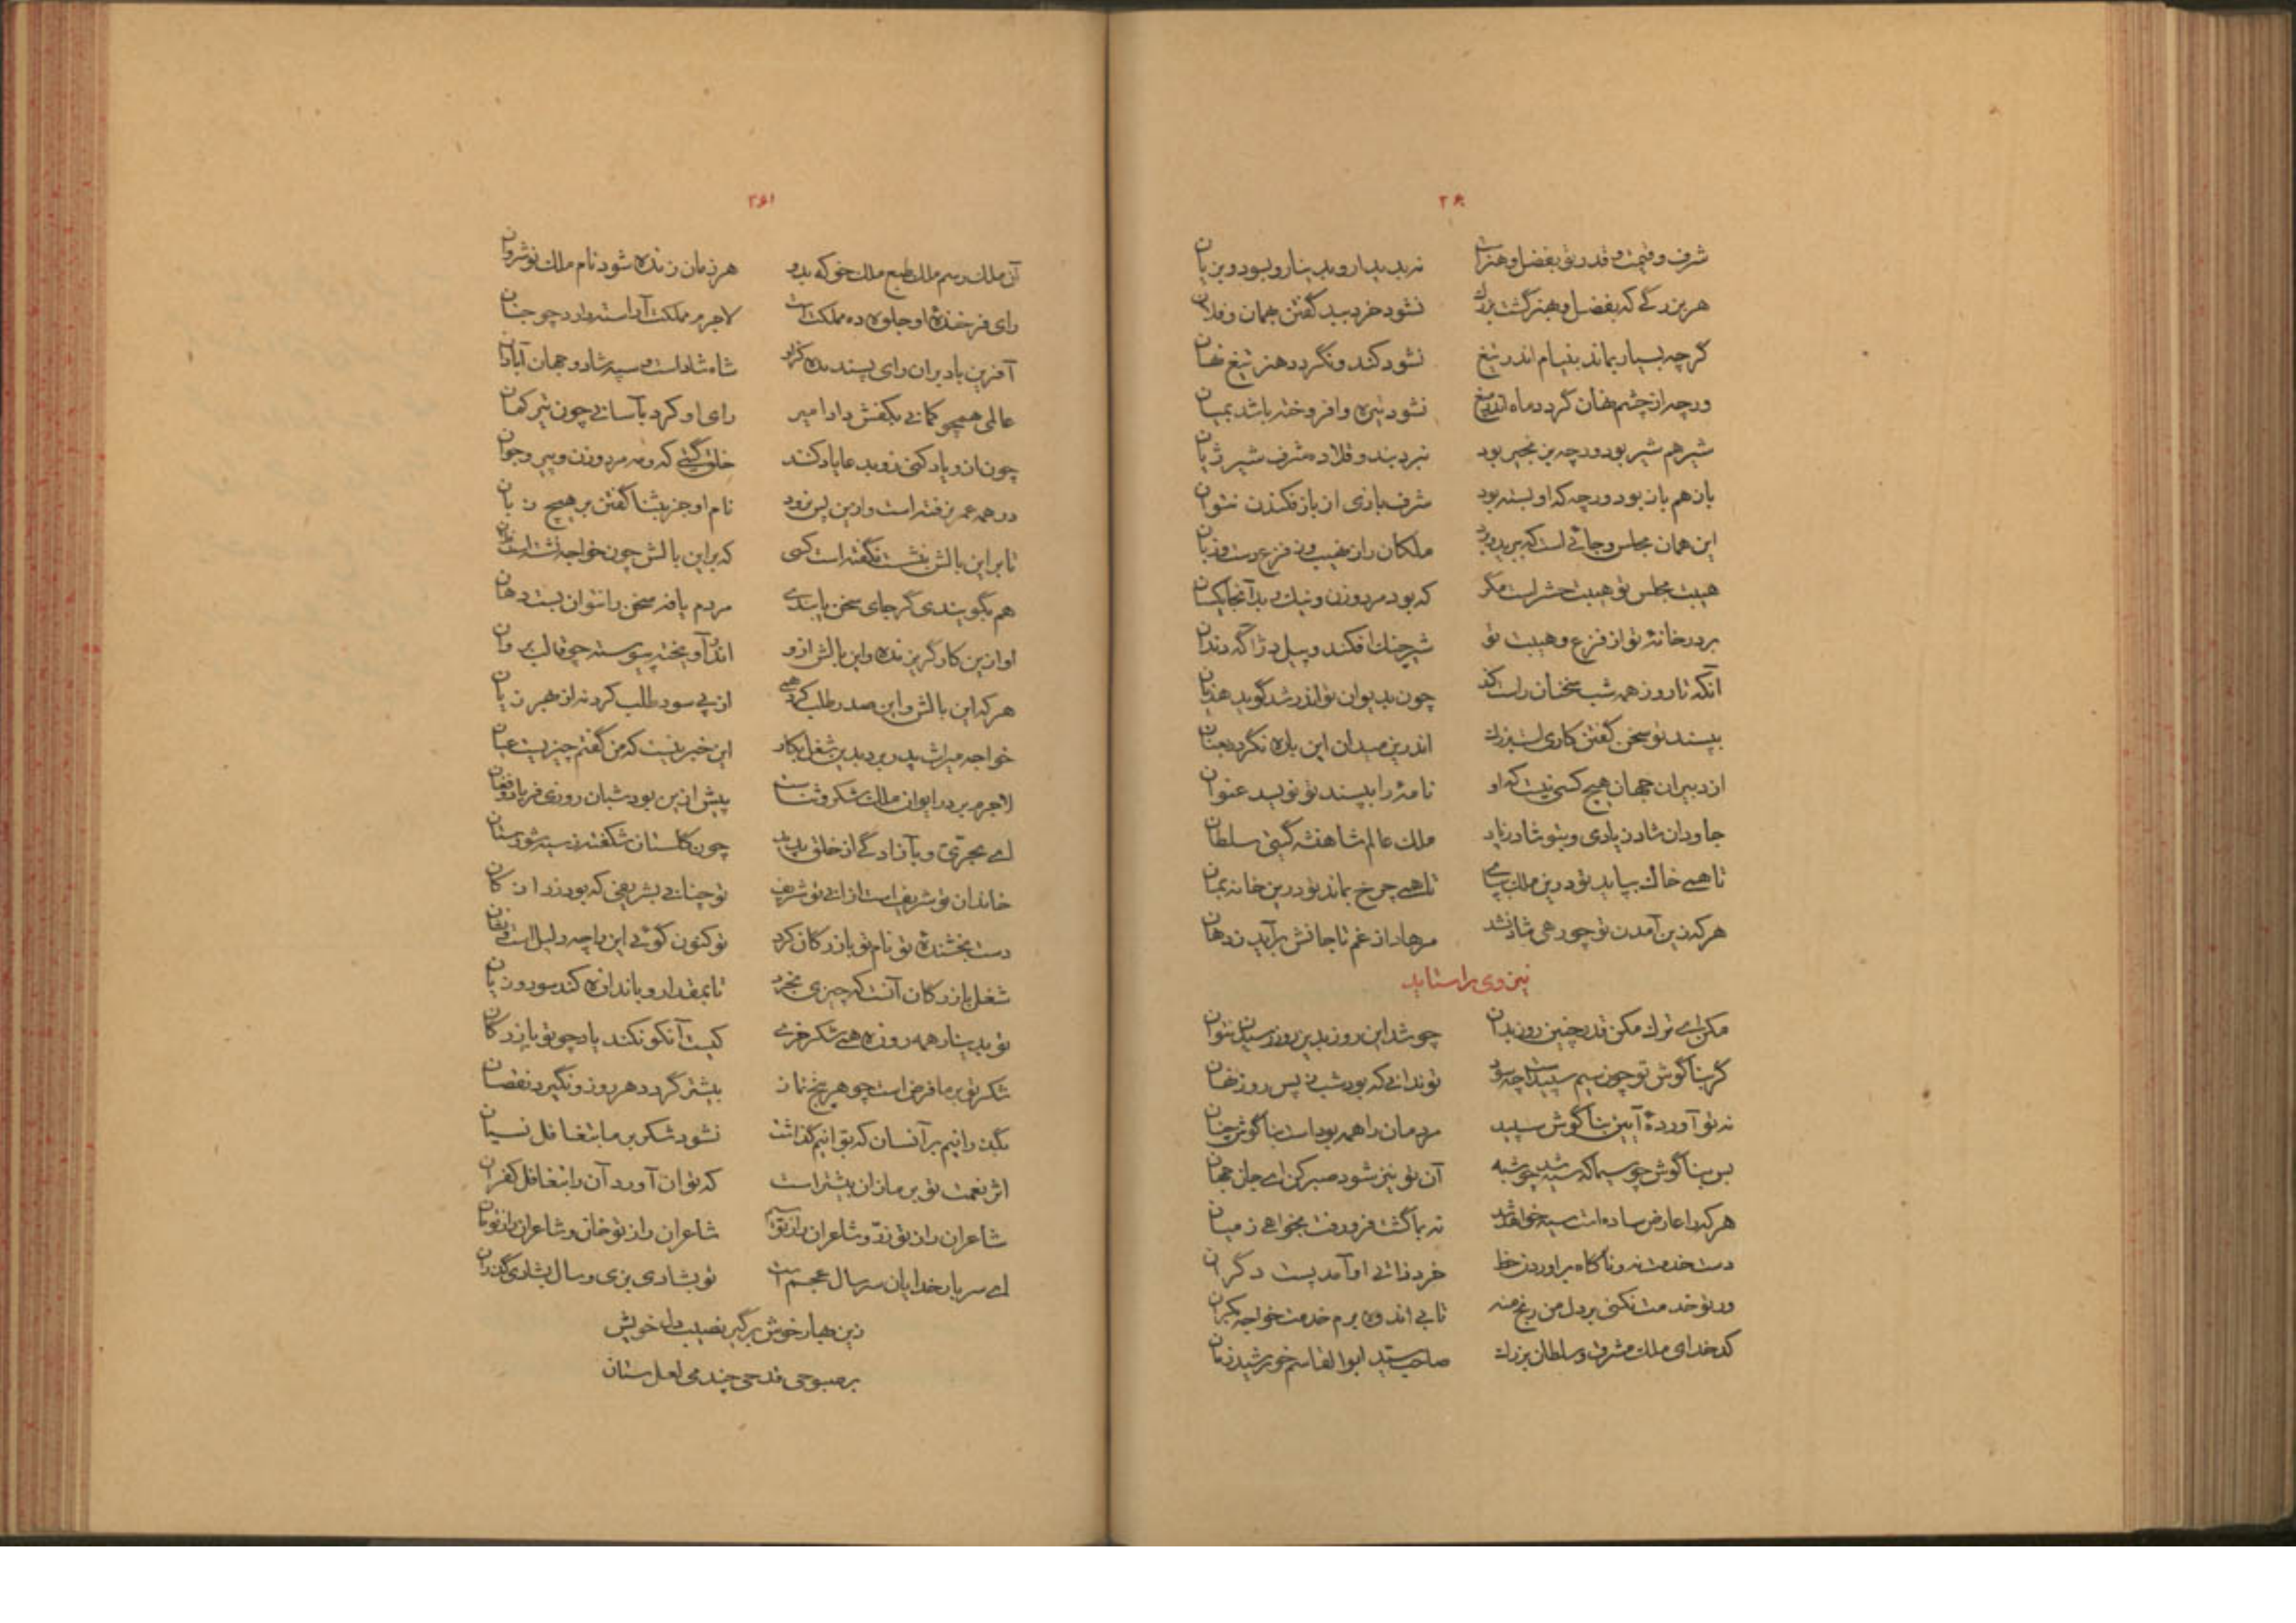 ۲۶۰
شرف و قیمت و قدر تو بفضل و هنرست نه بدیدار و بدینار و بسود و بزیان
هر بزرگی که بفضل و بهنر گشت بزرگ نشود خرد ببد گفتن بهمان و فلان
گرچه بسیار بماند بنیام اندر تیغ نشود کند و نگردد هنر تیغ نهان
ورچه از چشم نهان گردد ماه اندر میغ نشود تیره و افروخته باشد بمیان
شیر هم شیر بود ورچه بزنجیر بود نبرد بند و قلاده شرف شیر ژیان
باز هم باز بود ورچه که او بسته بود شرف بازی از باز فکندن نتوان
این همان مجلس و جائی است که
هیبت مجلس تو هیبت حشر است مگر که بود مرد و زن و نیک و بد آنجا یکسان
بر در خانهٔ تو از فزع و هیبت تو شیر چنگ افکند و پیل دژآگه دندان
آنکه تا روز همه شب سخنان راست کند چون بدیوان تو اندر شد گوید هذیان
بپسند تو سخن گفتن کاری است بزرگ اندرین میدان این باره نگردد بعنان
از دبیران جهان هیچ کسی نیست که او نامهٔ را بپسند تو نویسد عنوان
جاودان شاد زیادی و بتو شاد زیاد ملک عالم شاهنشه گیتی سلطان
تا همی خاک بپاید تو درین ملک بپای تا همی چرخ بماند تو درین خانه بمان
هر که زین آمدن تو چو رهی شاد نشد مرهاد از غم تا جانش برآید ز دهان
نیز وی را ستاید
مکن ای ترک مکن قدر چنین روز بدان چو شد این روز بدین روز رسیدن نتوان
گر بناگوش تو چون سیم سپیدست چه سود تو ندانی که بود شب ز پس روز نهان
نه تو آوردهٔ آیین بناگوش سپید مردمان را همه بوداست بناگوش چنان
بس بناگوش چو سیما که سیه شد چو شبه آن تو نیز شود صبر کن ای جان جهان
هر کرا عارض ساده است سیه خواهد شد نه باگشت فرو رفت بخواهی ز میان
دست خدمت نه و ناگاه براوردن خط خرد دانی او آمد پست دگران
ور تو خدمت نکنی بر دل من رنج منه تا بی اندوه برم خدمت خواجه بکران
کدخدای ملک مشرق و سلطان بزرگ صاحب سید ابوالقاسم خورشید زمان
۲۶۱
آن ملک رسم ملک طبع ملک خو که بدو هر زمان زنده شود نام ملک نوشروان
رای فرخندهٔ او جلوه ده مملکت است لاجرم مملکت آراسته دارد چو جنان
آفرین باد بران رای پسندیده کزو شاه شاد است و سپه شاد و جهان آبادان
عالمی همچو کمانی بکفش داد امیر رای او کرد بآسانی چون تیر کمان
چون ازو یاد کنی زو بدعا یاد کنند خلق گیتی که و مه مرد و زن و پیر و جوان
در همه عمر نرفته است و ازین پس نرود نام او جز بثنا گفتن بر هیچ زبان
تا بر این بالش بنشست نگفته است کسی که بر این بالش چون خواجه نشسته است
هم بگویندی گر جای سخن یابندی مردم یافه سخن را نتوان بست دهان
او ازین کار گریزنده و این بالش ازو اندر آویخته پیوسته چو قالب بروان
هر که این بالش و این صدر طلب کرد همی از پی سود طلب کرد نه از بهر زیان
خواجه میراث پدر برد بدین شغل بکار این خبر نیست که من گفتم چیزیست عیان
لاجرم بر در ایوان ملک شکر و ثناست پیش ازین بود شبان روزی فریاد و فغان
ای بحری و بآزادگی از خلق پدید چون گلستان شکفته ز سیه شورستان
خاندان تو شریف است ازانی تو شریف تو چنانی بشریفی که بود زر از کان
دست بخشندهٔ تو نام تو بازرگان کرد تو کنون گوئی این را چه دلیل است و نشان
شغل بازرگان آنست که چیزی بخرد تا بمقدار و باندازه کند سود و زیان
تو بدینار همه روزه همی شکر خری کیست آنکو نکند یاد چو تو بازرگان
شکر تو بر ما فرض است چو هر پنج نماز بیشتر گردد هر روز و نگیرد نقصان
بگذرانیم بر آنسان که توانیم گذاشت نشود شکر بر ما بتغافل نسیان
اثر نعمت تو بر ما زان بیشتر است که توان آورد آن را بتغافل کفران
شاعران را ز تو زر و شاعران را ز تو سیم شاعران را ز تو خان و شاعران را ز تو مان
ای سر بار خدایان سر سال عجم است تو بشادی بزی و سال بشادی گذران
زین بهار خوش برگیر نصیب دل خویش
بر صبوحی قدحی چند می لعل ستان